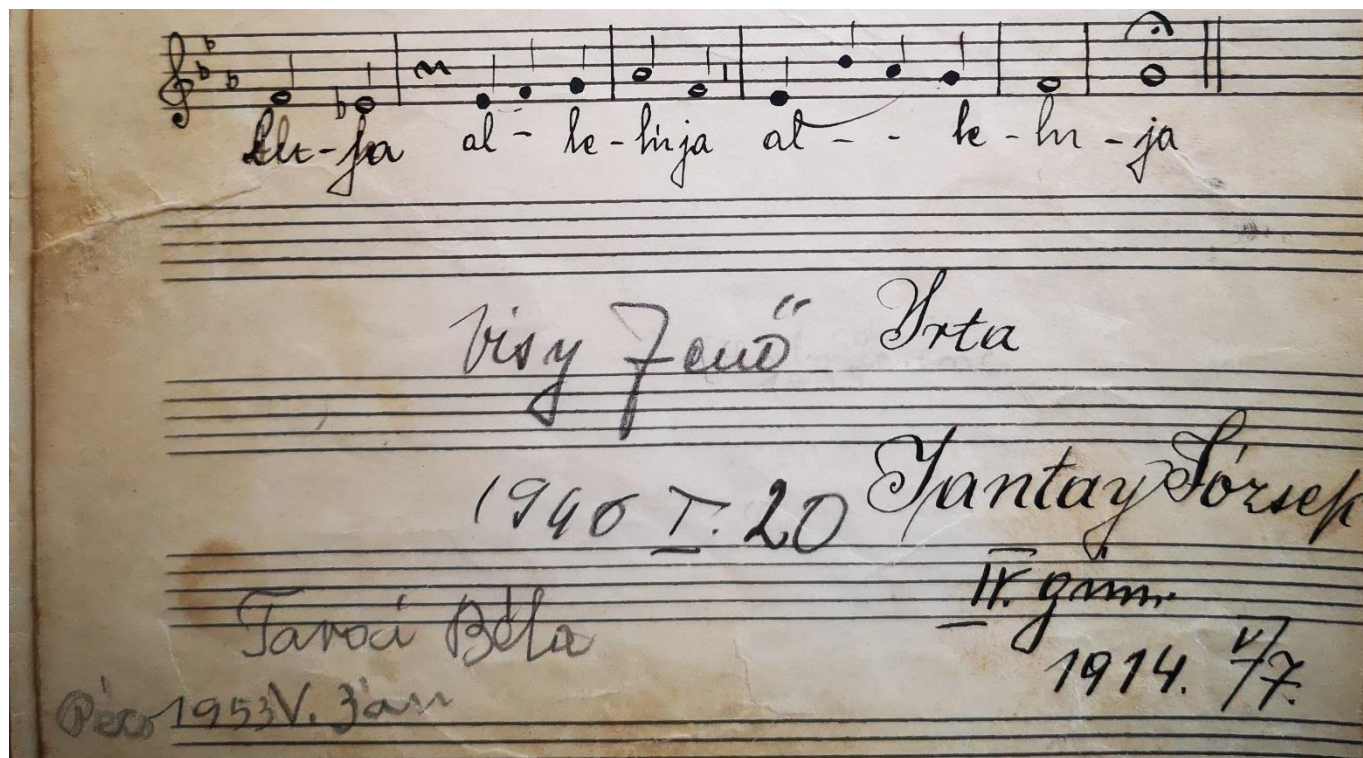 lu-ja al - le-luja al - - le-lu-ja
Visy Jenő
Yrta
1946 I. 20
Jantay József
IV. gim.
1914. V/7.
Béla
Pécs 1953 V. 3án